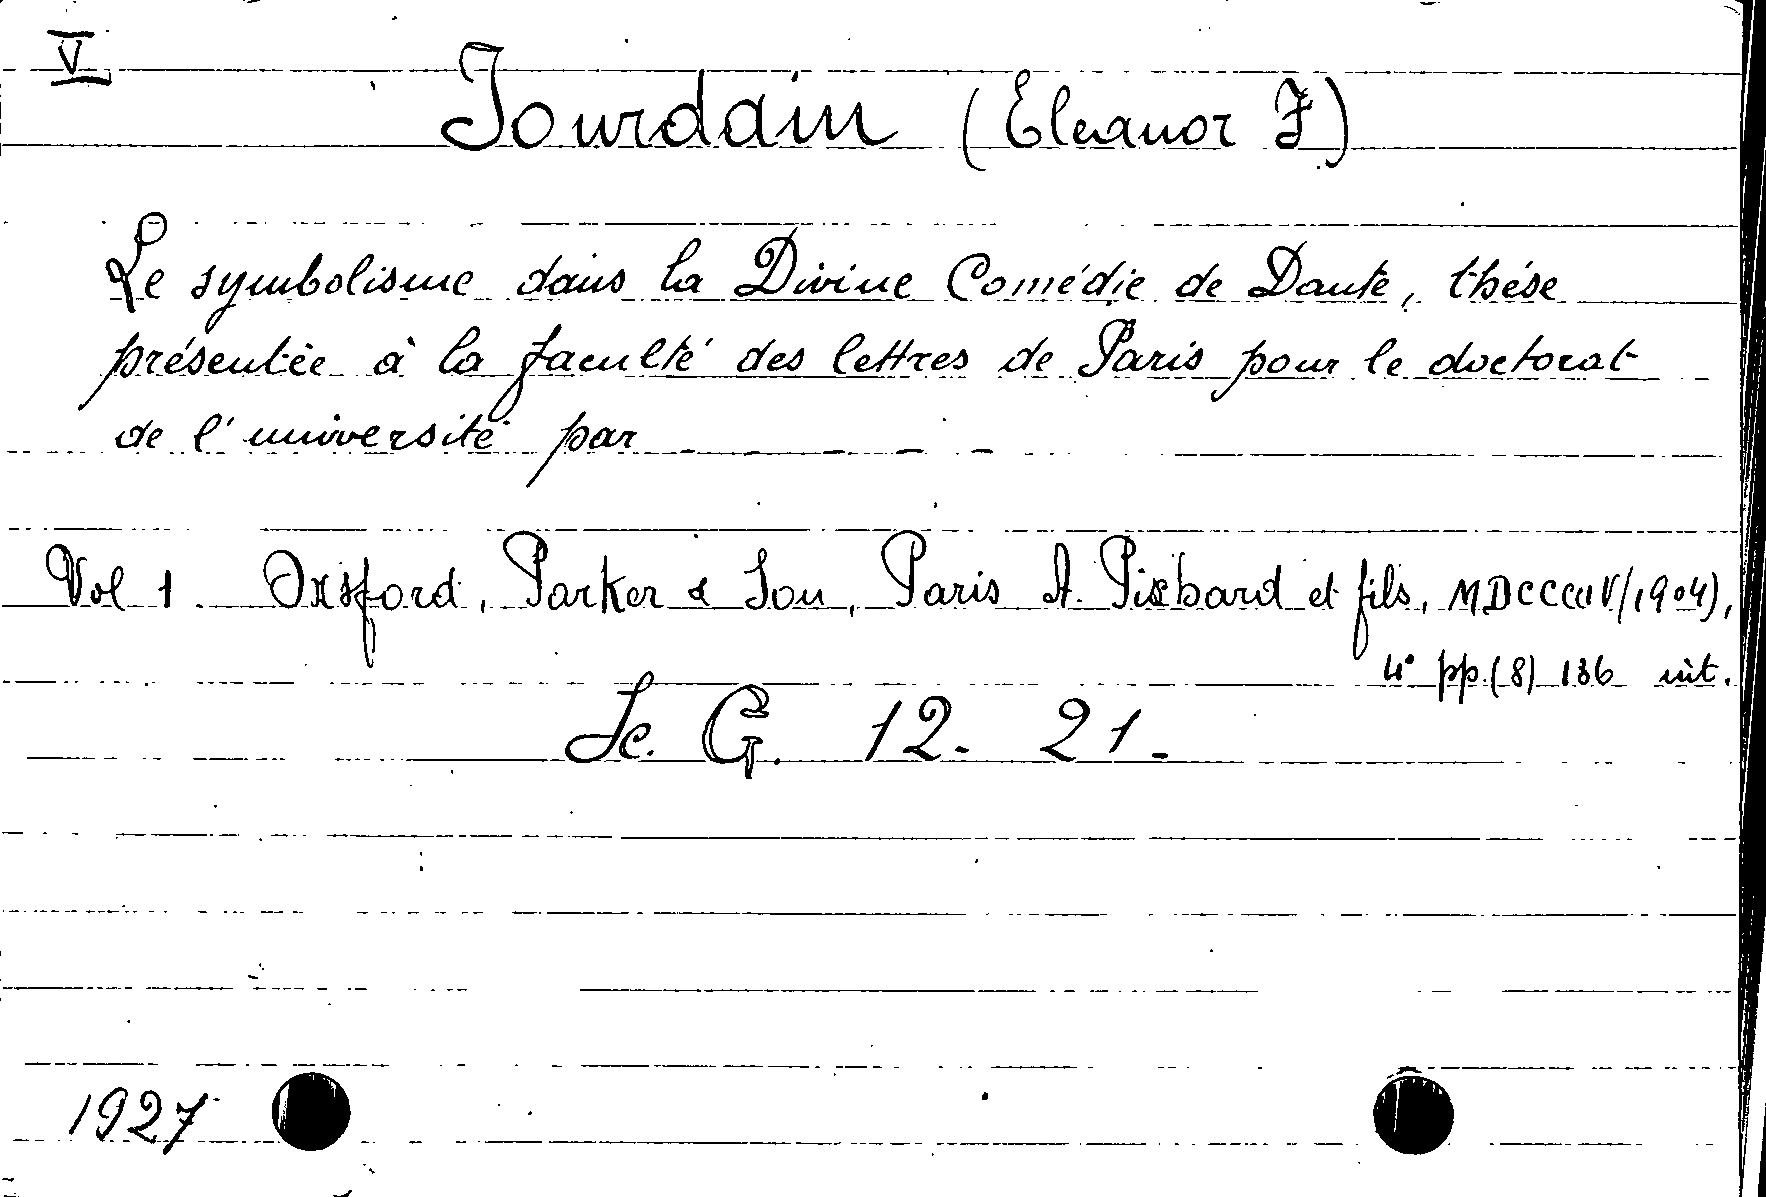 V
Jourdain (Eleanor F)
Le symbolisme dans la Divine Comédie de Dante, thése
présentée à la faculté des lettres de Paris pour le doctorat
de l'université par _ _ _ _ _
Vol 1 Oxsford, Parker & Son, Paris A. Picbard et fils, MDCCCCIV (1904),
4° pp. (8) 136 int.
Sc. G. 12. 21.
1927